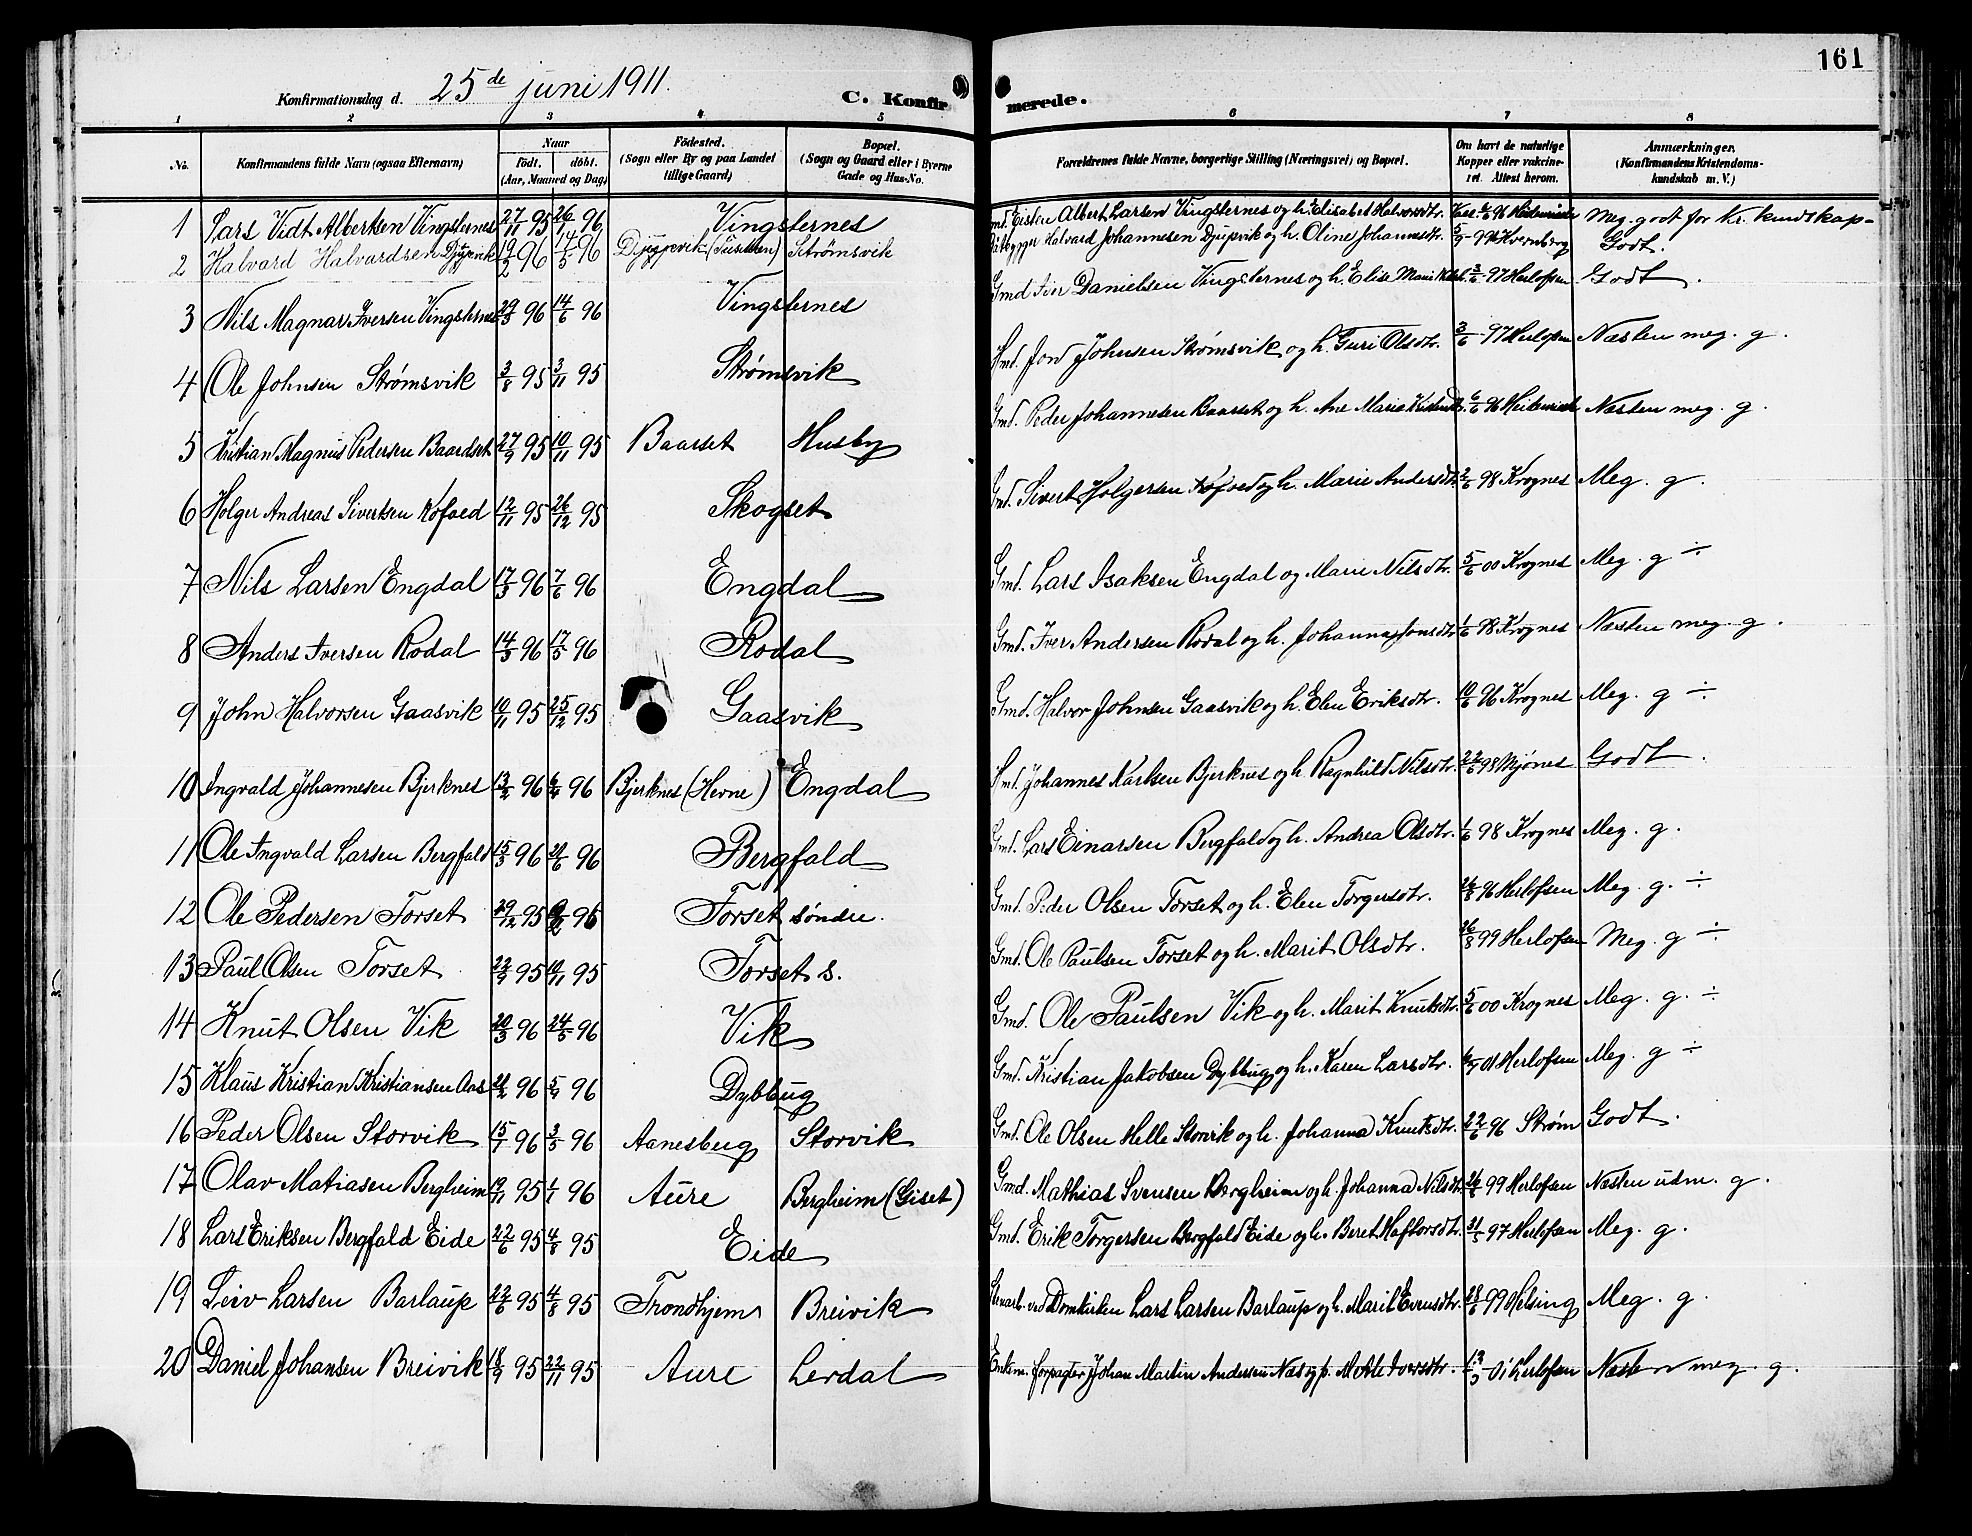 161
Konfirmationsdag d. 25de juni 1911.
C. Konfirmerede.
1 2 3 4 5 6 7 8
No. | Konfirmandens fulde Navn (ogsaa Efternavn) | Naar født. døbt. (Aar, Maaned og Dag) | Fødested. (Sogn eller By og paa Landet tillige Gaard) | Bopæl. (Sogn og Gaard eller i Byerne Gade og Hus-No. | Forældrenes fulde Navne, borgerlige Stilling (Næringsvei) og Bopæl. | Om havt de naturlige Kopper eller vaccineret. Attest herom. | Anmærkninger. (Konfirmandens Kristendomskundskab m. V.)
1 Lars Vidt Albertsen Vingsternes 27/11 95 26/1 96 Vingsternes Albert Larsen Vingsternes og h. Elisabet Halvorsdtr. 96 Meg. godt for Kr. kundskap-
2 Halvard Halvardsen Djupvik 19/2 96 14/5 96 Djupvik (Tusteren) Strømsvik Halvard Johannesen Djupvik og h. Oline Johannsdtr. Kvernberg Godt.
3 Nils Magnar Iversen Vingsternes 29/3 96 14/6 96 Vingsternes Gmd Iver Danielsen Vingsternes og h. Elise Marie 3/6 97 Herlofsen Godt.
4 Ole Johnsen Strømsvik 3/8 95 3/11 95 Strømsvik Hmd. Jon Johnsen Strømsvik og h. Guri Olsdtr. 3/6 97 Herlofsen Næsten meg. g.
5 Kristian Magnus Pedersen Baardset 27/9 95 10/11 95 Baarset Husby Gmd. Peder Johannesen Baarset og h. Ane Maria 6/6 96 Næsten meg. g.
6 Holger Andreas Sivertsen Kofoed 12/11 95 26/12 95 Skogset Gmd. Sivert Holgersen Kofoed og h. Marie Andersdtr. 2/6 98 Krognes Meg. g.
7 Nils Larsen Engdal 17/3 96 7/6 96 Engdal Gmd. Lars Isaksen Engdal og Marie Nilsdtr. 5/6 00 Krognes Meg. g ÷
8 Anders Iversen Rodal 14/3 96 17/5 96 Rodal Gmd. Iver Andersen Rodal og h. Johanna Jonsdtr. 1/6 98 Krognes Næsten meg. g.
9 John Halvorsen Gaasvik 10/11 95 25/12 95 Gaasvik Gmd. Halvor Johnsen Gaasvik og h. Elen Eriksdtr. 10/6 96 Krognes Meg. g ÷
10 Ingvald Johannesen Bjerknes 13/2 96 6/4 96 Bjerknes (Hevne) Engdal Hmd. Johannes Karlsen Bjerknes og h. Ragnhild Nilsdtr. 22/6 98 Mjönes Godt.
11 Ole Ingvald Larsen Bergfald 15/3 96 21/6 96 Bergfald Gmd. Lars Einarsen Bergfald og h. Andrea Olsdtr. 1/6 98 Krognes Meg. g.
12 Ole Pedersen Torset 29/12 95 9/2 96 Torset søndre. Gmd. Peder Olsen Torset og h. Elen Torgersdtr. 26/8 96 Herlofsen Meg. g. ÷
13 Paul Olsen Torset 22/9 95 10/11 95 Torset s. Gmd. Ole Paulsen Torset og h. Marit Olsdtr. 26/8 99 Herlofsen Meg. g ÷
14 Knut Olsen Vik 20/3 96 24/5 96 Vik Gmd. Ole Paulsen Vik og h. Marit Knutsdtr. 5/6 00 Krognes Meg. g. ÷
15 Klaus Kristian Kristiansen Aas 21/2 96 5/4 96 Dybbug Gmd. Kristian Jakobsen Dybbug og h. Karen Larsdtr. 01 Herlofsen Meg. g ÷
16 Peder Olsen Storvik 15/1 96 3/5 96 Aanesberg Storvik Gmd. Ole Olsen Helle Storvik og h. Johanna Knutsdtr. 22/6 96 Strøm Godt.
17 Olav Matiasen Bergheim 19/11 95 1/1 96 Aure Bergheim (Giset) Gmd. Mathias Svensen Bergheim og h. Johanna Nilsdtr. 99 Herlofsen Næsten udm. g.
18 Lars Eriksen Bergfald Eide 22/6 95 4/8 95 Eide Gmd. Erik Torgersen Bergfald Eide og h. Beret Haftorsdtr. 31/5 97 Herlofsen Meg. g.
19 Leiv Larsen Barlaup 22/6 95 4/8 95 Trondhjem Breivik Stenarb. ved Domkirken Lars Larsen Barlaup og h. Marit Evensdtr. 28/6 99 Helsing Meg. g.
20 Daniel Johansen Breivik 18/9 95 22/11 95 Aure Lerdal Enkem. forpagter Johan Martin Andersen Næs og 01 Herlofsen Næsten meg. g.